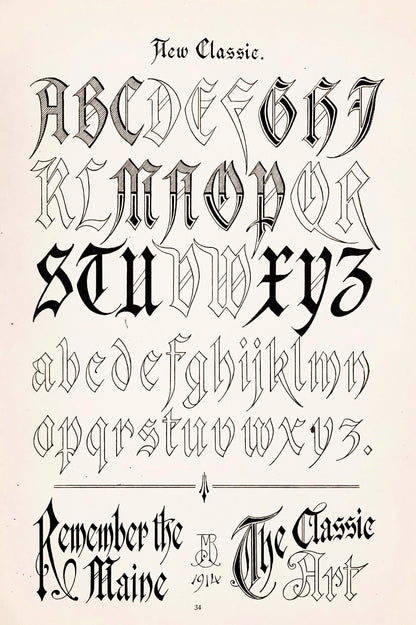 New Classic.
ABCDEFGHI
KLMNOPQR
STUVWXYZ
abcdefghijklmn
opqrstuvwxyz.
Remember the
Maine
1914
The Classic
Art
34